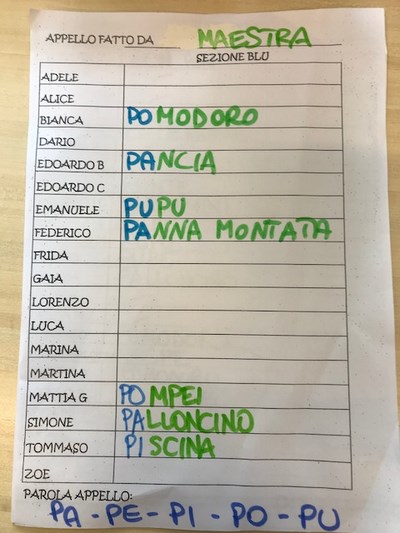 APPELLO FATTO DA MAESTRA
SEZIONE BLU
ADELE
ALICE
BIANCA POMODORO
DARIO
EDOARDO B PANCIA
EDOARDO C
EMANUELE PUPU
FEDERICO PANNA MONTATA
FRIDA
GAIA
LORENZO
LUCA
MARINA
MARTINA
MATTIA G POMPEI
SIMONE PALLONCINO
TOMMASO PISCINA
ZOE
PAROLA APPELLO:
PA - PE - PI - PO - PU